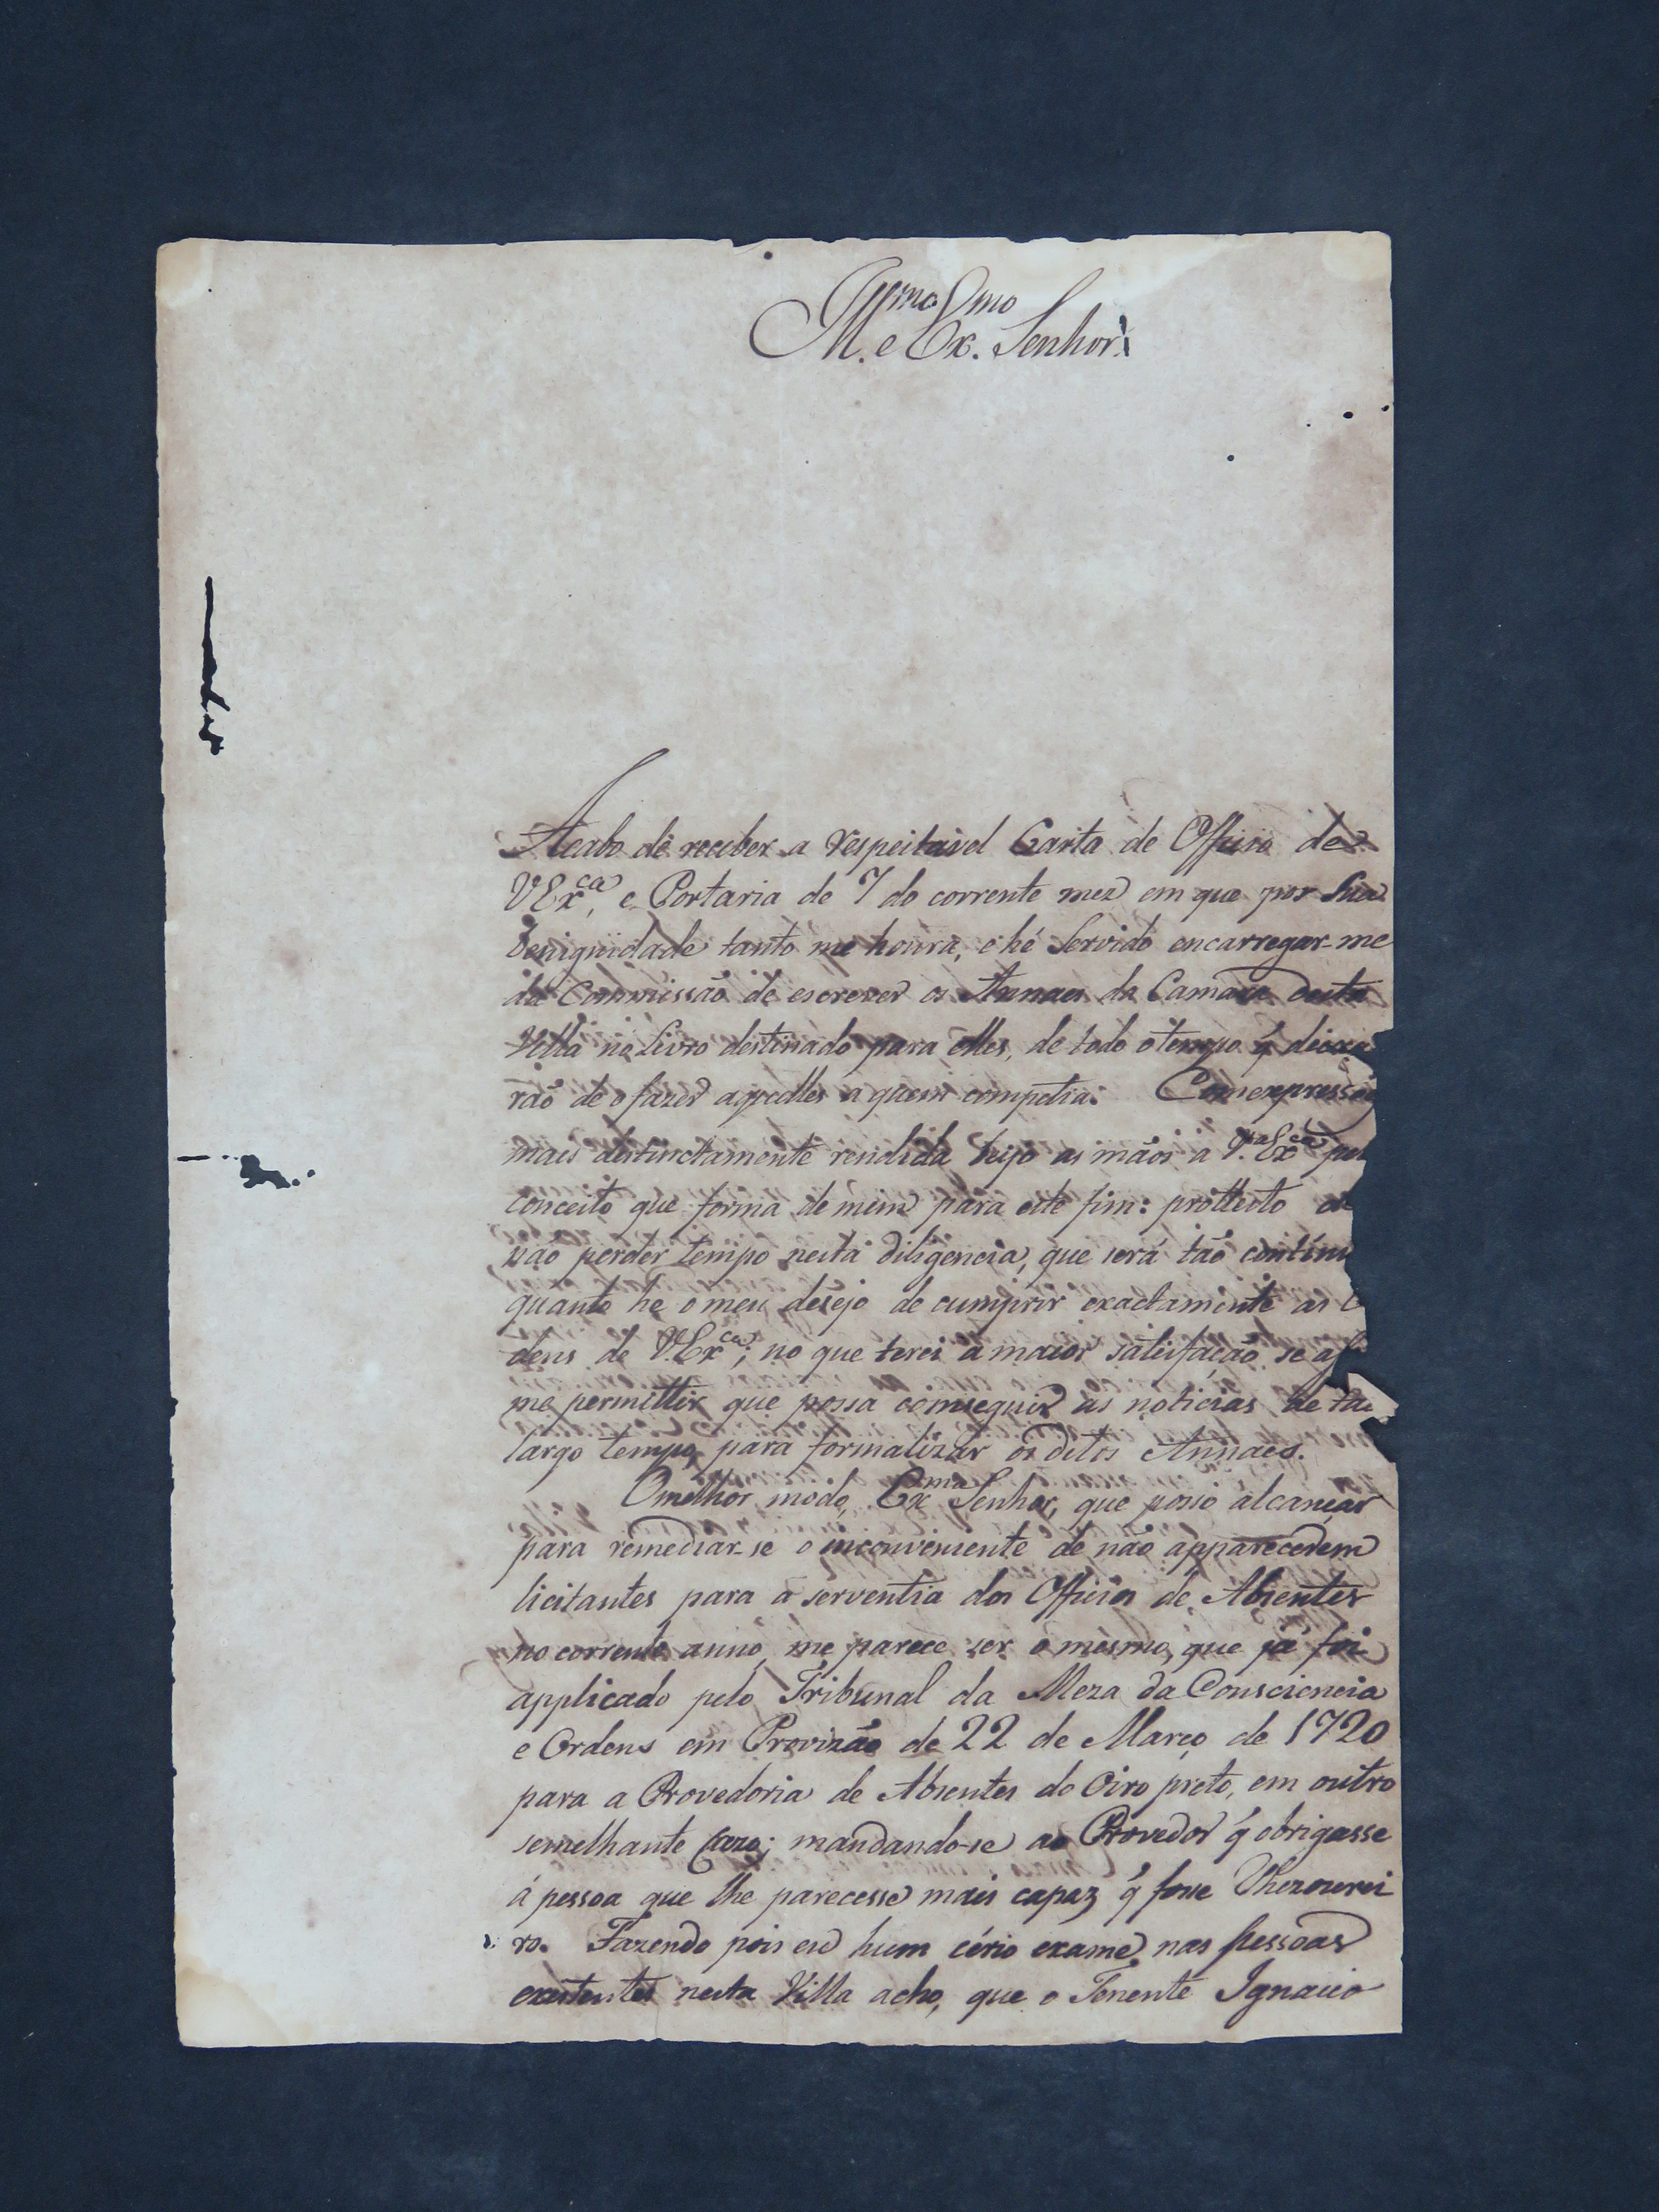 Ill.mo e Ex.mo Senhor
Acabo de receber a respeitavel Carta de Officio de
VEx.ca, e Portaria de 7 do corrente mez em que por Sua
benignidade tanto me honra, e hé Servido encarregar-me
da Commissão de escrever os Annaes da Camara desta
Villa no Livro destinado para elles, de todo o tempo q̃ deixa
rão de o fazer aquelles a quem competia. Com expressoẽ
mais destinctamente rendida beijo as mãos a V.a Ex.ca pel
conceito que forma de mim para este fim: prottesto de
não perder tempo nesta diligencia, que será tão contínu
quanto he o meu desejo de cumprir exactamente as O
dens de V.Ex.ca; no que terei a maior satisfação se as
me permittir que possa comseguir as noticias de ta
largo tempo para formalizar os ditos Annaes.
O melhor modo, Ex.mo Senhor, que posso alcançar
para remediar-se o inconveniente de não apparecerem
licitantes para a serventia dos Officios de Absentes
no corrente anno, me parece ser o mesmo, que já foi
applicado pelo Tribunal da Meza da Consciencia
e Ordens em Provizão de 22 de Março de 1720
para a Provedoria de Absentes do Oiro preto, em outro
semelhante Cazo; mandando-se ao Provedor q̃ obrigasse
á pessoa que lhe parecesse mais capaz q̃ fosse Thezourei
ro. Fazendo pois eu hum cério exame nas pessoas
existentes nesta Villa acho, que o Tenente Ignacio